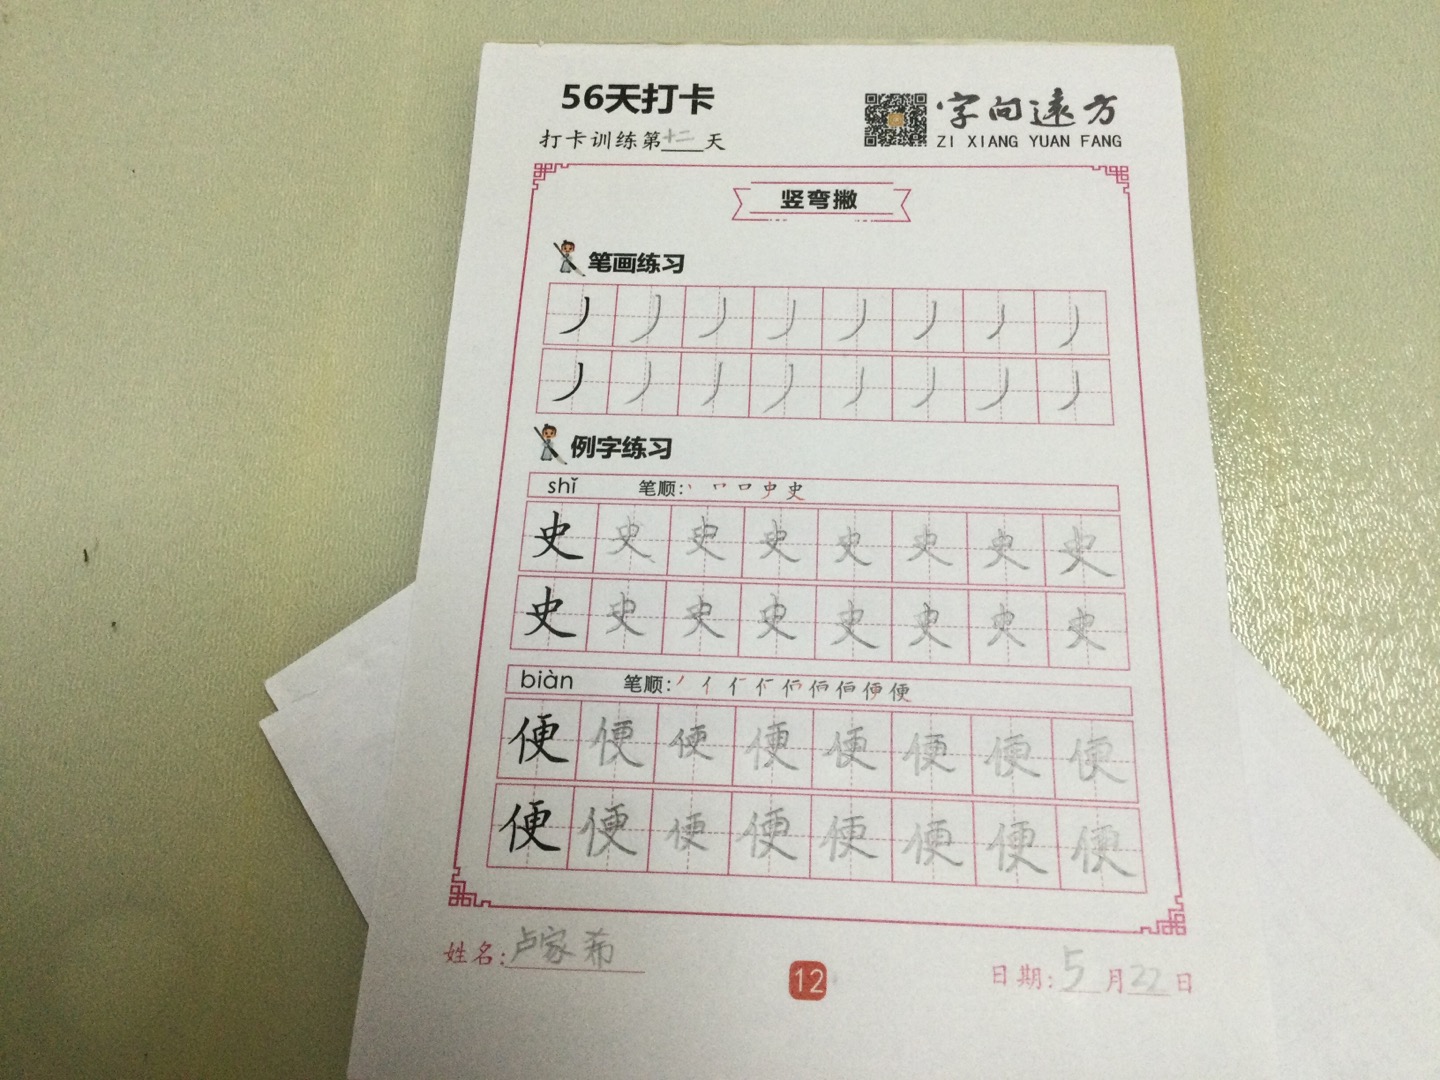 56天打卡
字向远方
打卡训练第十二天
ZI XIANG YUAN FANG
竖弯撇
笔画练习
丿丿丿丿丿丿丿丿
丿丿丿丿丿丿丿丿
例字练习
shǐ 笔顺: 丨 𠃍 口 史 史
史史史史史史史史
史史史史史史史史
biàn 笔顺: 便
便便便便便便便便
便便便便便便便便
姓名:卢家希
12
日期:5月22日